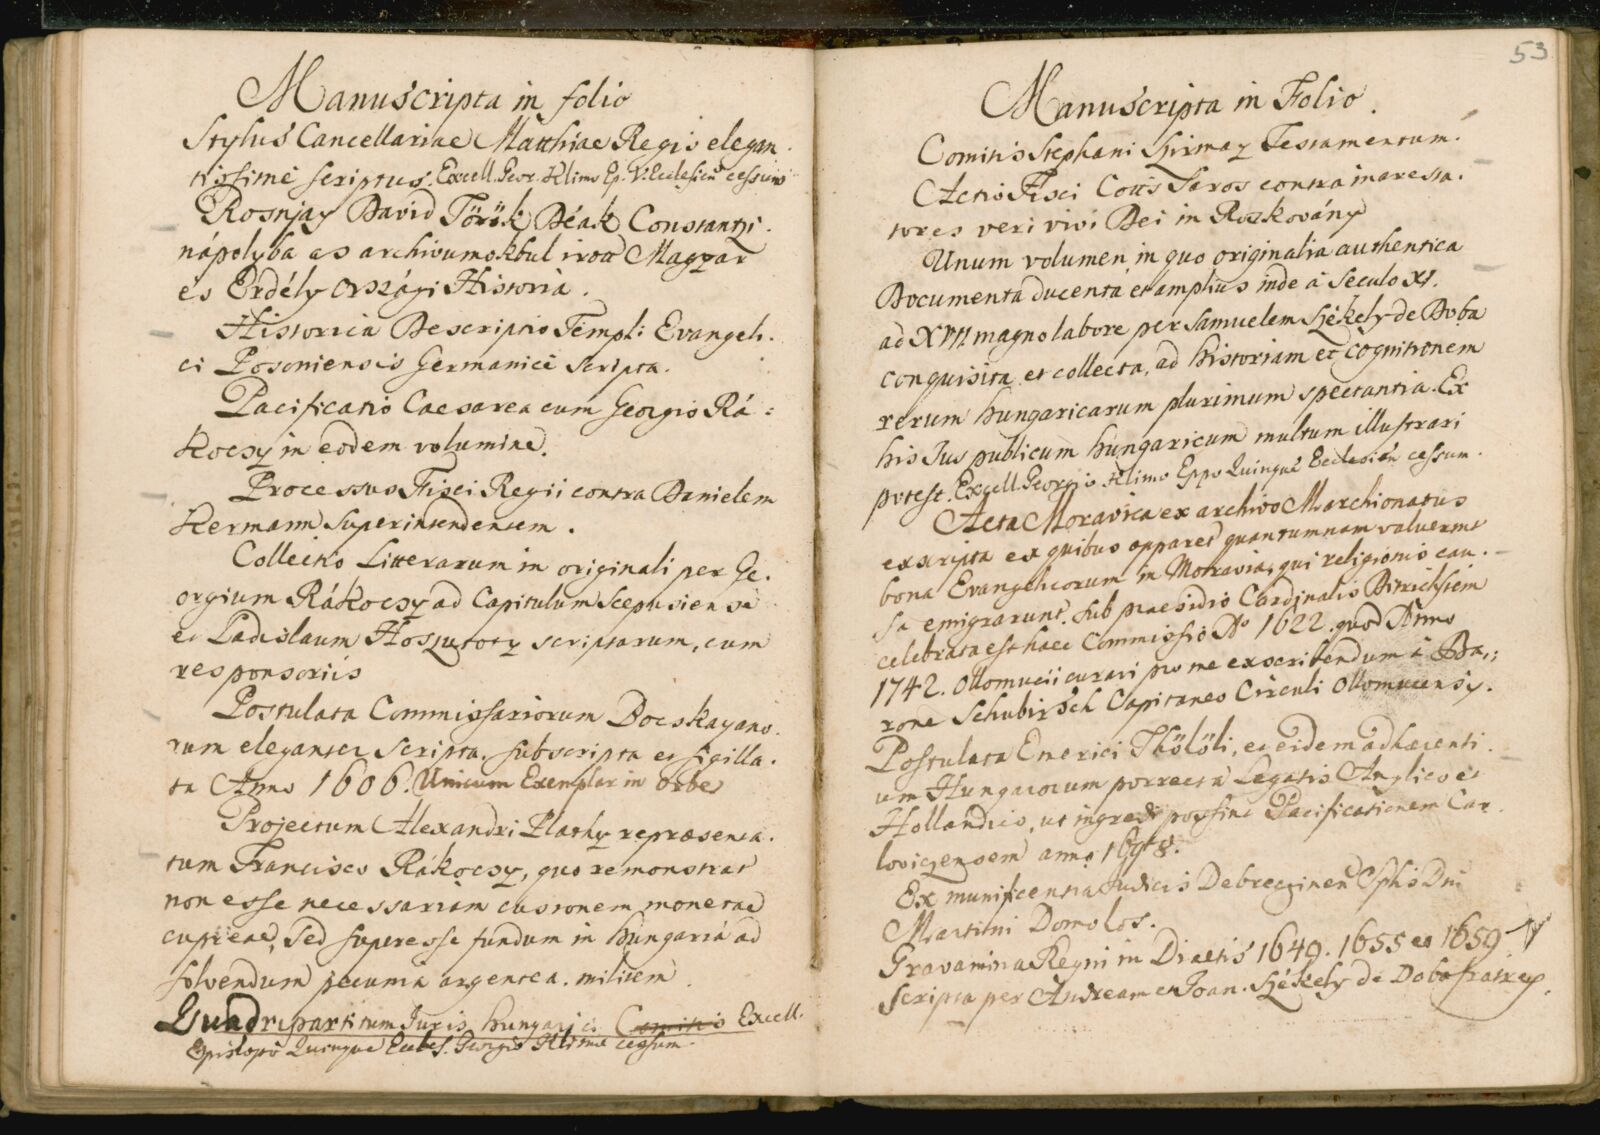 Manuscripta in folio
Stylus Cancellariae Matthiae Regis elegan-
tissime scriptus. Excell. Geor. Klimo Ep. V. Ecclesien cessum
Rosnyay David Török Déak Constantzi-
nápolyba as archivumokbul irott Magyar
és Erdély Országi Historia.
Historica Descriptio Templ: Evangeli-
ci Posoniensis Germanicè scripta.
Pacificatio Caesarea cum Georgio Rá-
koczy in eodem volumine.
Processus Fisci Regii contra Danielem
Hermann Superintendensem.
Collectio Litterarum in originali per Ge-
orgium Rákoczy ad Capitulum Scepusiense
et Ladislaum Hoszutoty scriptarum, cum
responsoriis
Postulata Commissariorum Bocskayano-
rum eleganter scripta, subscripta et sigilla-
ta Anno 1606. Unicum Exemplar in orbe
Projectum Alexandri Plathy repraesenta-
tum Francisco Rákoczy, quo remonstrat
non esse necessariam cusionem monetae
cupreae, sed superesse fundum in Hungariá ad
solvendum pecunia argentea militem
Quadripartitum Juris Hungarici Comitis Excell.
Episkopo Quinque Eccles. Georgio Klimo cessum
53
Manuscripta in Folio.
Comitis Stephani Szirmay Testamentum.
Actio Fisci Cottis Saros contra inaresta-
tores veri vivi Dei in Roskovány
Unum volumen, in quo originalia authentica
Documenta ducenta et amplius inde à Seculo XI.
ad XVII magno labore per Samuelem Székely de Doba
conquisita et collecta, ad historiam et cognitionem
rerum hungaricarum plurimum spectantia. Ex
his Jus publicum hungaricum multum illustrari
potest. Excell. Georgio Klimo Eppo Quinque Ecclesién cessum.
Acta Moravica ex archivo Marchionatus
exscripta ex quibus apparet quantumnam valuerint
bona Evangelicorum in Moravia, qui religionis cau-
sa emigrarunt. Sub praesidio Cardinalis Ditrichstein
celebrata est haec Commissio Ao 1622. quod Anno
1742. Ollomucii curavi pro me exscribendum à Ba-
rone Schubirsch Capitaneo Circuli Ollomucensis.
Postulata Emerici Thököli, et eidem adhaerenti-
um Hungarorum porrecta Legatis Anglico et
Hollandico, ut ingredi possint Pacificationem Car-
loviczensem anno 1698.
Ex munificentia Judicis Debreczinen Sphis Dni
Martini Domolos.
Gravamina Regni in Diaetis 1649. 1655 et 1659
scripta per Andream et Joan. Székely de Doba fratres.